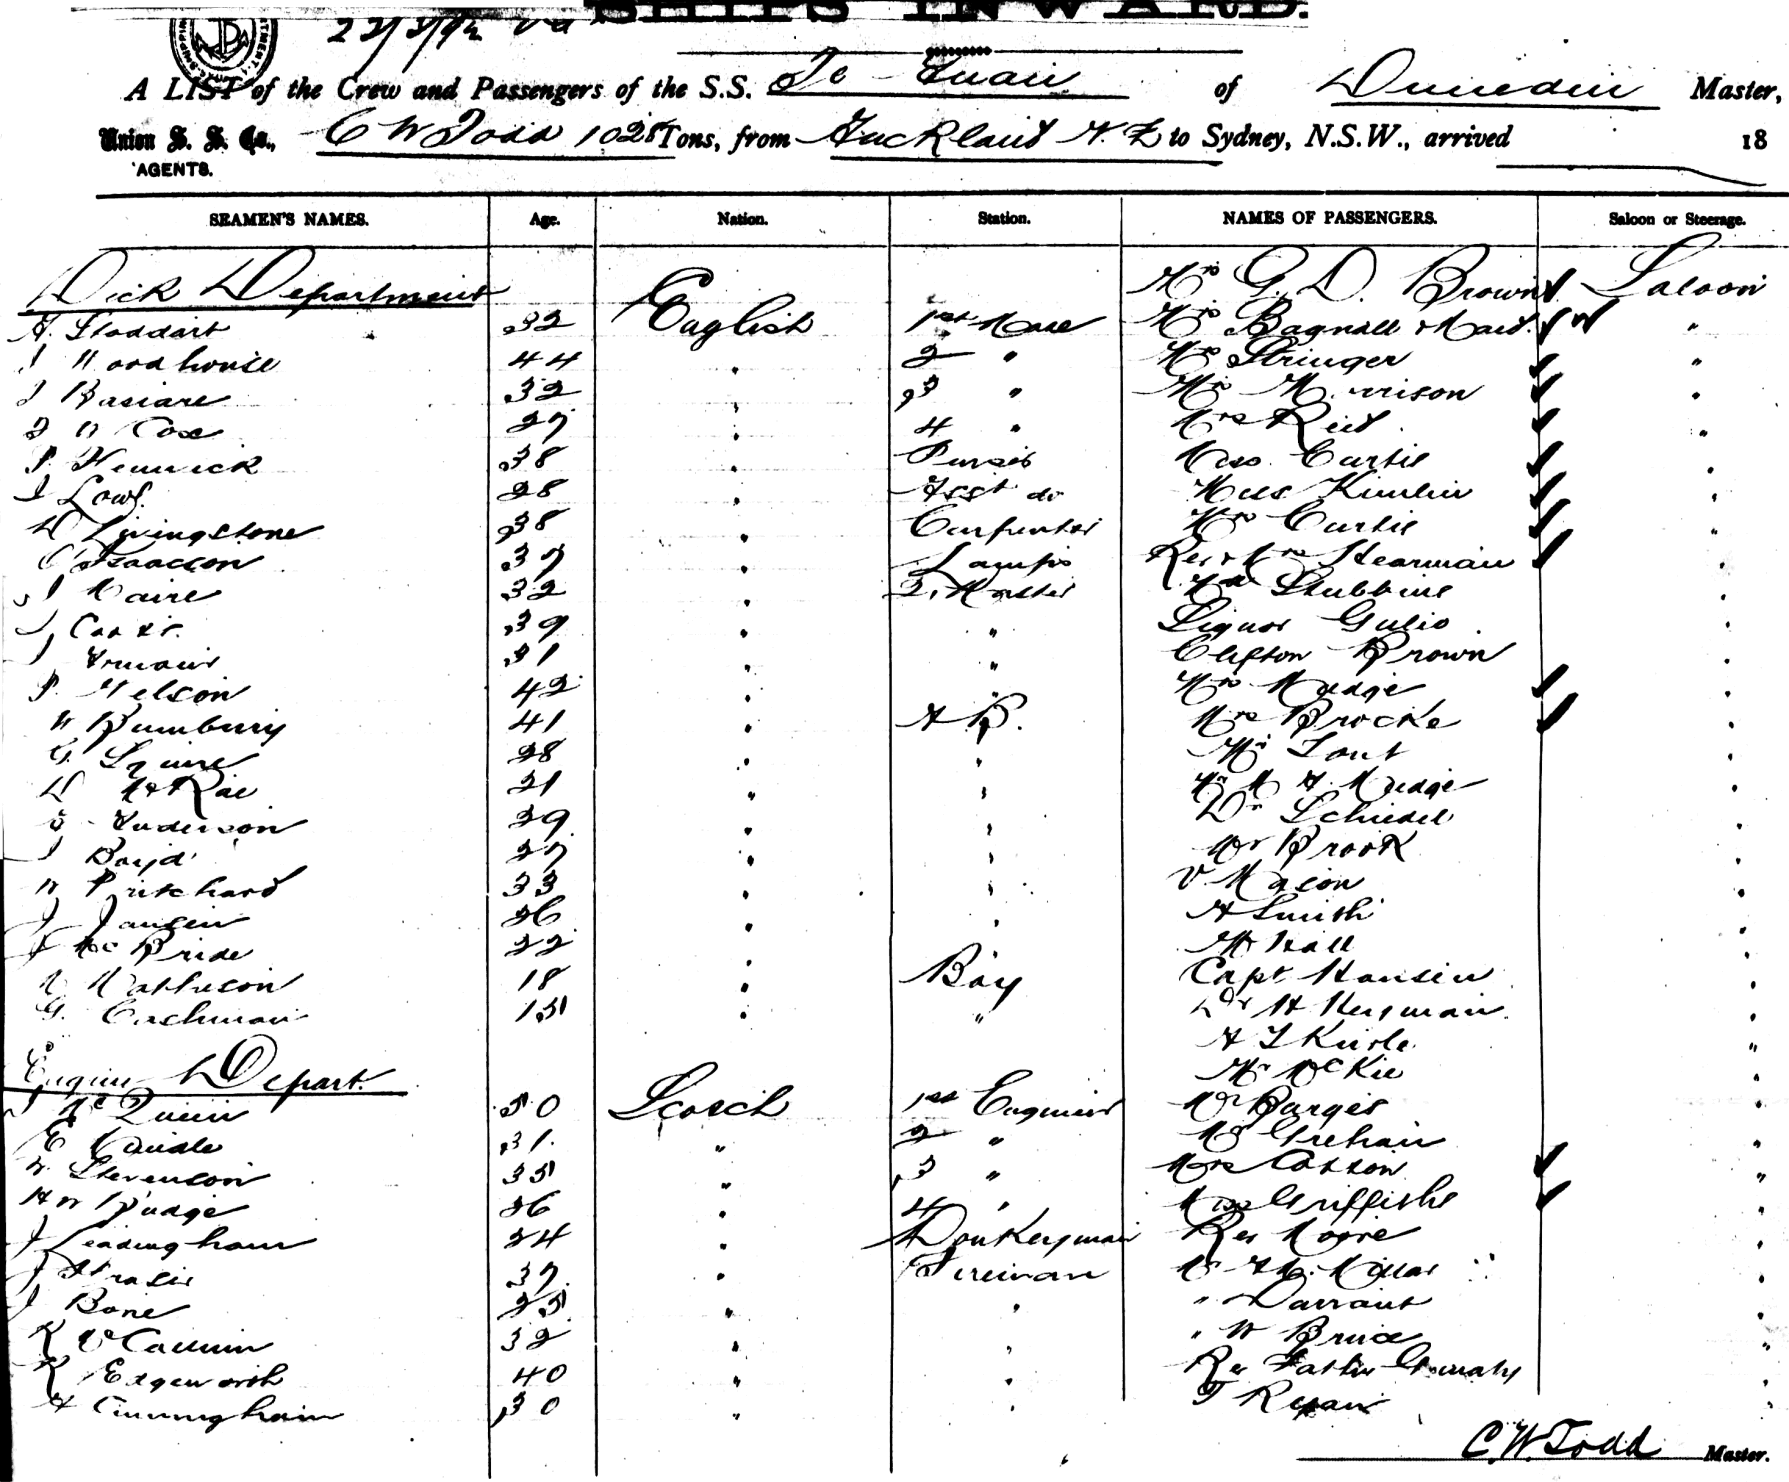 SHIPS INWARD.
22/3/92
A LIST of the Crew and Passengers of the S.S. Te Anau of Dunedin Master,
Union S. S. Co., C W Todd 1028 Tons, from Auckland N. Z to Sydney, N.S.W., arrived 18
AGENTS.
SEAMEN'S NAMES. Age. Nation. Station. NAMES OF PASSENGERS. Saloon or Steerage.
Deck Department Mrs G. D. Brown Saloon
A. Stoddart 32 English 1st Mate Mrs Bagnall & Maid "
J Woodhouse 44 " 2 " Mrs Stringer "
J 32 " 3 " Morrison "
Cox 27 " 4 " Mrs Reid "
P. 38 " Purser Miss Curtis "
J Low 28 " Asst do Miss "
D Livingstone 38 " Carpenter Mrs Curtis "
C Isaacson 37 " Lamps Rev & Mrs Hearman "
J 32 " Q. Master Stubbins "
J 39 " " Signor Gulio "
J 31 " " Clifton Brown "
P. Nelson 42 " " Mrs Mudge "
W Bumburry 41 " A B. Mrs Brocke "
G Squire 28 " " Mr "
D McRae 21 " " Mudge "
Anderson 29 " " Dr "
J Boyd 27 " " Mr Brook "
W Pritchard 33 " " V Mason "
J Jansen 26 " " A Smith "
J McBride 22 " " Mr Hall "
Matheson 18 " Boy Capt Hansen "
G. Cashman 15 " " Dr H Keyman "
A
Engine Depart. Mr McKie
J McQuin 50 Scotch 1st Engineer Mr Burges "
E 31 " 2 " Mr Grehan "
W Stevenson 35 " 3 " "
H W Budge 26 " 4 " Miss Griffiths "
J Leadingham 24 " Donkeyman Rev Moore "
J Fraser 37 " Fireman Millar "
J Bone 25 " " " Darrant "
R McCallum 32 " " " W Bruce "
R Edgeworth 40 " " Rev Father "
A Cunningham 30 " " T Regan "
C. W. Todd Master.